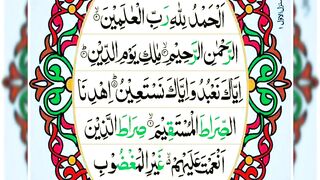 اَلْحَمْدُ لِلّٰهِ رَبِّ الْعٰلَمِيْنَ
الرَّحْمٰنِ الرَّحِيْمِ مٰلِكِ يَوْمِ الدِّيْنِ
اِيَّاكَ نَعْبُدُ وَاِيَّاكَ نَسْتَعِيْنُ اِهْدِنَا
الصِّرَاطَ الْمُسْتَقِيْمَ صِرَاطَ الَّذِيْنَ
اَنْعَمْتَ عَلَيْهِمْ غَيْرِ الْمَغْضُوْبِ